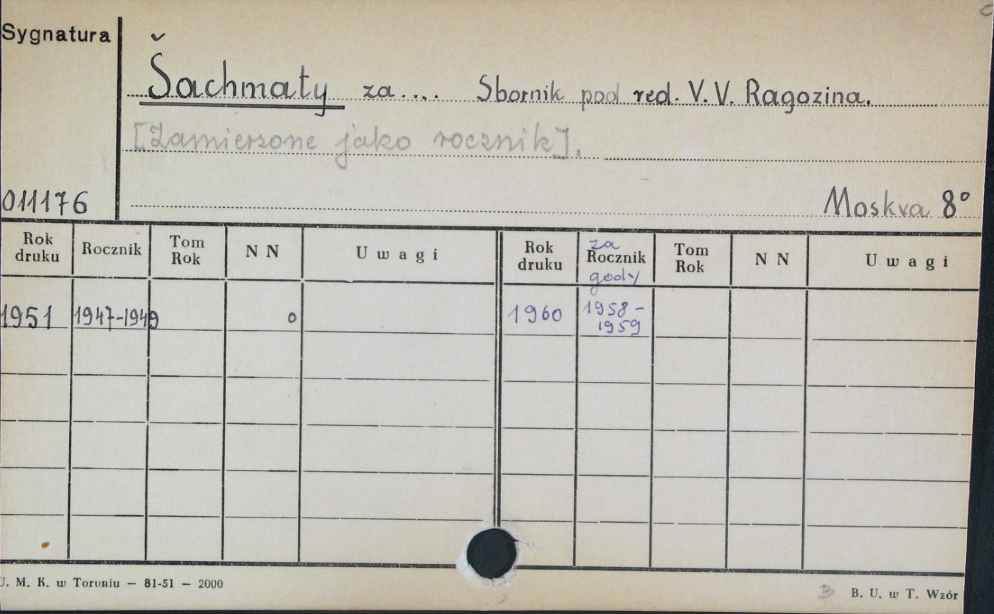 Sygnatura
Šachmaty za.... Sbornik pod red. V. V. Ragozina.
[Zamierzone jako rocznik].
011176
Moskva 8°
Rok druku Rocznik Tom Rok N N Uwagi Rok druku za Rocznik gody Tom Rok N N Uwagi
1951 1947-1949 0 1960 1958-1959
U. M. K. w Toruniu — 81-51 — 2000
B
B. U. w T. Wzór